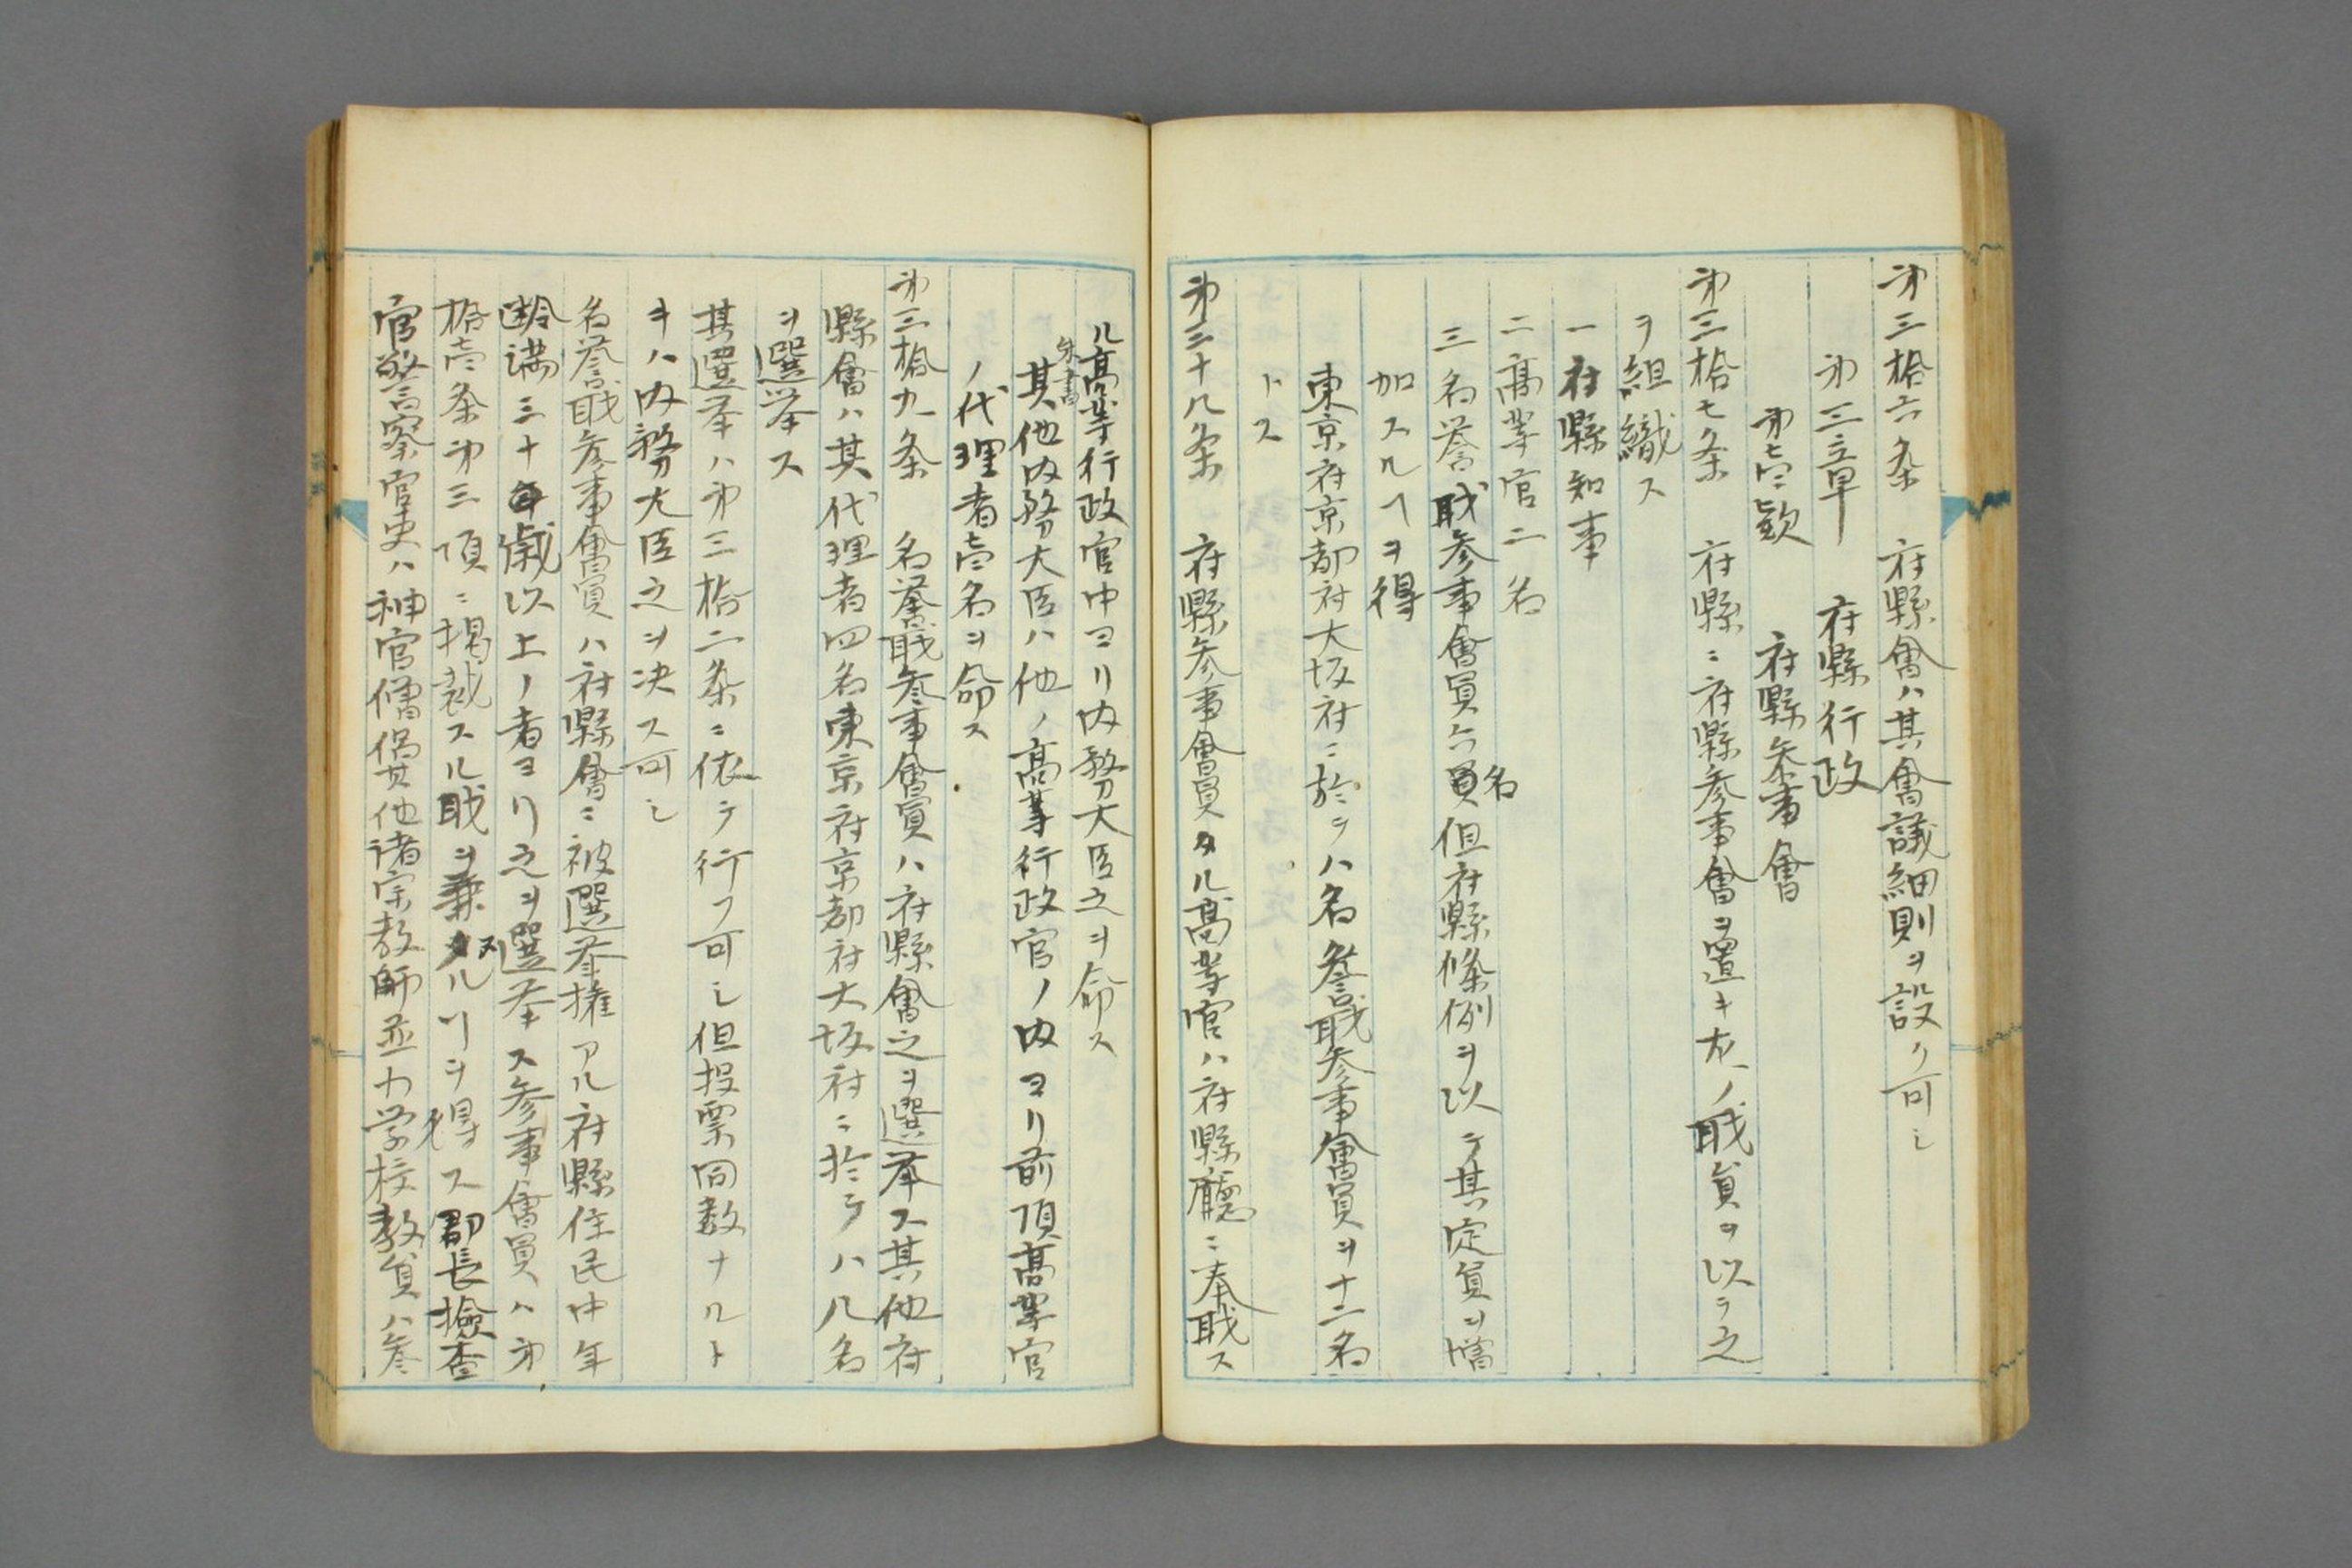 第三拾六条　府縣會ハ其會議細則ヲ設ク可シ
第三章　府縣行政
第壱款　府縣参事會
第三拾七条　府縣ニ府縣参事會ヲ置キ左ノ職員ヲ以テ之
ヲ組織ス
一府縣知事
二高等官二名
三名誉職参事會員六員名但府縣條例ヲ以テ其定員ヲ増
加スルヿヲ得
東京府京都府大坂府ニ於テハ名誉職参事會員ヲ十二名
トス
第三十八条　府縣参事會員タル高等官ハ府縣廳ニ奉職ス
ル高等行政官中ヨリ内務大臣之ヲ命ス
朱書
其他内務大臣ハ他ノ高等行政官ノ内ヨリ前項高等官
ノ代理者壱名ヲ命ス
第三拾九条　名誉職参事會員ハ府縣會之ヲ選挙ス其他府
縣會ハ其代理者四名東京府京都府大坂府ニ於テハ八名
ヲ選挙ス
其選挙ハ第三拾二条ニ依テ行フ可シ但投票同数ナルト
キハ内務大臣之ヲ決ス可シ
名誉職参事會員ハ府縣會ニ被選挙権アル府縣住民中年
齢満三十年歳以上ノ者ヨリ之ヲ選挙ス参事會員ハ第
拾壱条第三項ニ掲裁スル職ヲ兼タヌルヿヲ得ス郡長検査
官警察官吏ハ神官僧侶其他諸宗教師並カ学校教員ハ参